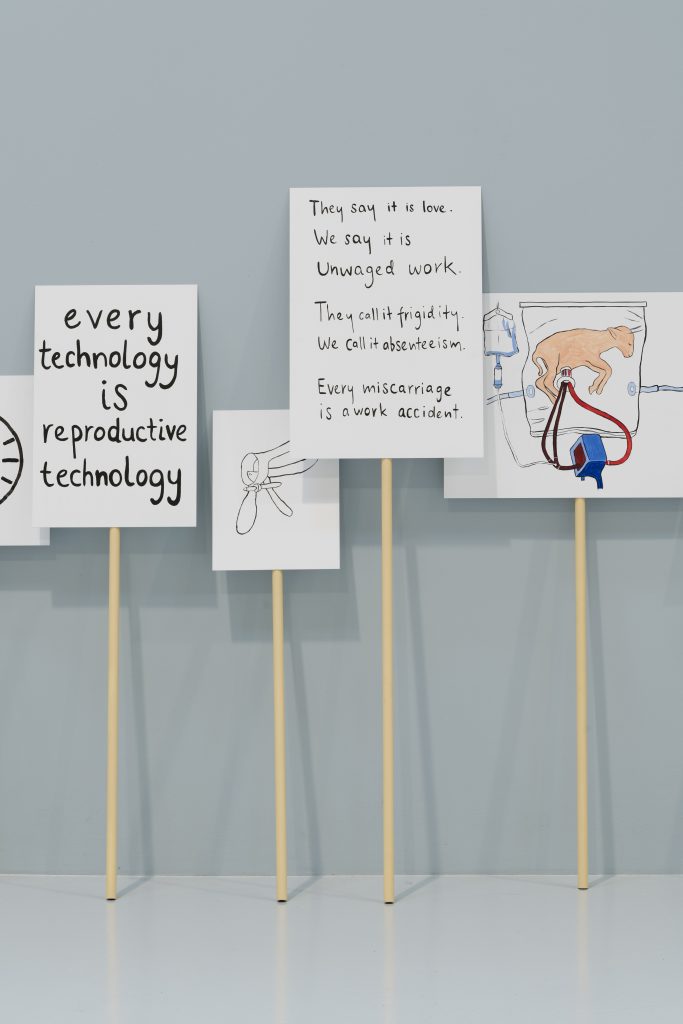 every
technology
is
reproductive
technology
They say it is love.
We say it is
Unwaged work.
They call it frigidity.
We call it absenteeism.
Every miscarriage
is a work accident.